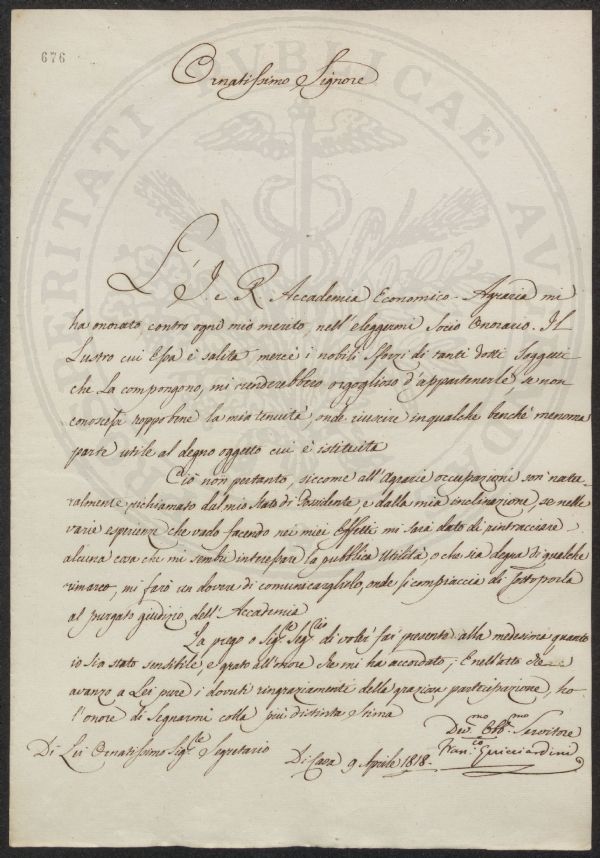 676
Ornatissimo Signore
L'I. e R. Accademia Economico-Agraria mi
ha onorato contro ogni mio merito nell'eleggermi Socio Onorario. Il
Lustro cui Essa è salita mercè i nobili sforzi di tanti dotti Soggetti
che La compongono, mi renderebbero orgoglioso d'appartenerle se non
conoscessi troppo bene la mia tenuità, onde riuscire in qualche benchè menoma
parte utile al degno oggetto cui è istituita
Ciò non pertanto, siccome all'Agrarie occupazioni son natu-
ralmente richiamato dal mio Stato di Possidente, e dalla mia inclinazione, se nelle
varie esperienze che vado facendo nei miei Effetti mi sarà dato di rintracciare
alcuna cosa che mi sembri interessare la pubblica Utilità, o che sia degna di qualche
rimarco, mi farò un dovere di comunicargliolo, onde si compiaccia di sottoporla
al purgato giudizio dell'Accademia
La prego o Sigre Segrio di voler far presente alla medesima quanto
io sia stato sensibile, e grato all'onore che mi ha accordato; E nell'atto che
avanzo a Lei pure i dovuti ringraziamenti della graziosa partecipazione, ho
l'onore di segnarmi colla più distinta stima
Di Lei Ornatissimo Sigre Segretario
Di Casa 9 Aprile 1818.
Devmo Obbmo Servitore
Franco Guicciardini